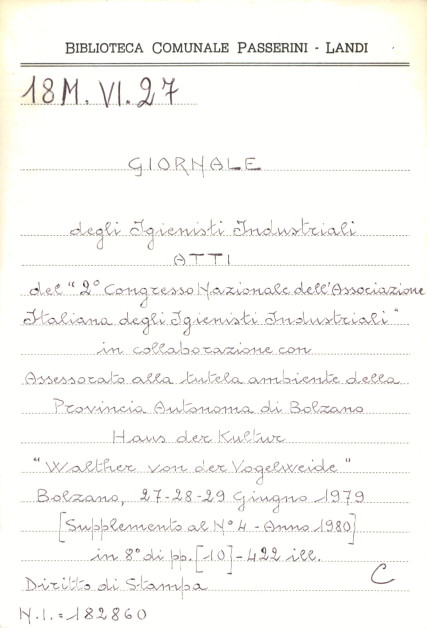 BIBLIOTECA COMUNALE PASSERINI - LANDI
18 M. VI. 27
GIORNALE
degli Igienisti Industriali
ATTI
del "2° Congresso Nazionale dell'Associazione
Italiana degli Igienisti Industriali"
in collaborazione con
Assessorato alla tutela ambiente della
Provincia Autonoma di Bolzano
Haus der Kultur
"Walther von der Vogelweide"
Bolzano, 27-28-29 Giugno 1979
[Supplemento al N° 4 - Anno 1980]
in 8° di pp. [10] - 422 ill.
Diritto di Stampa
C
N.I. = 182860